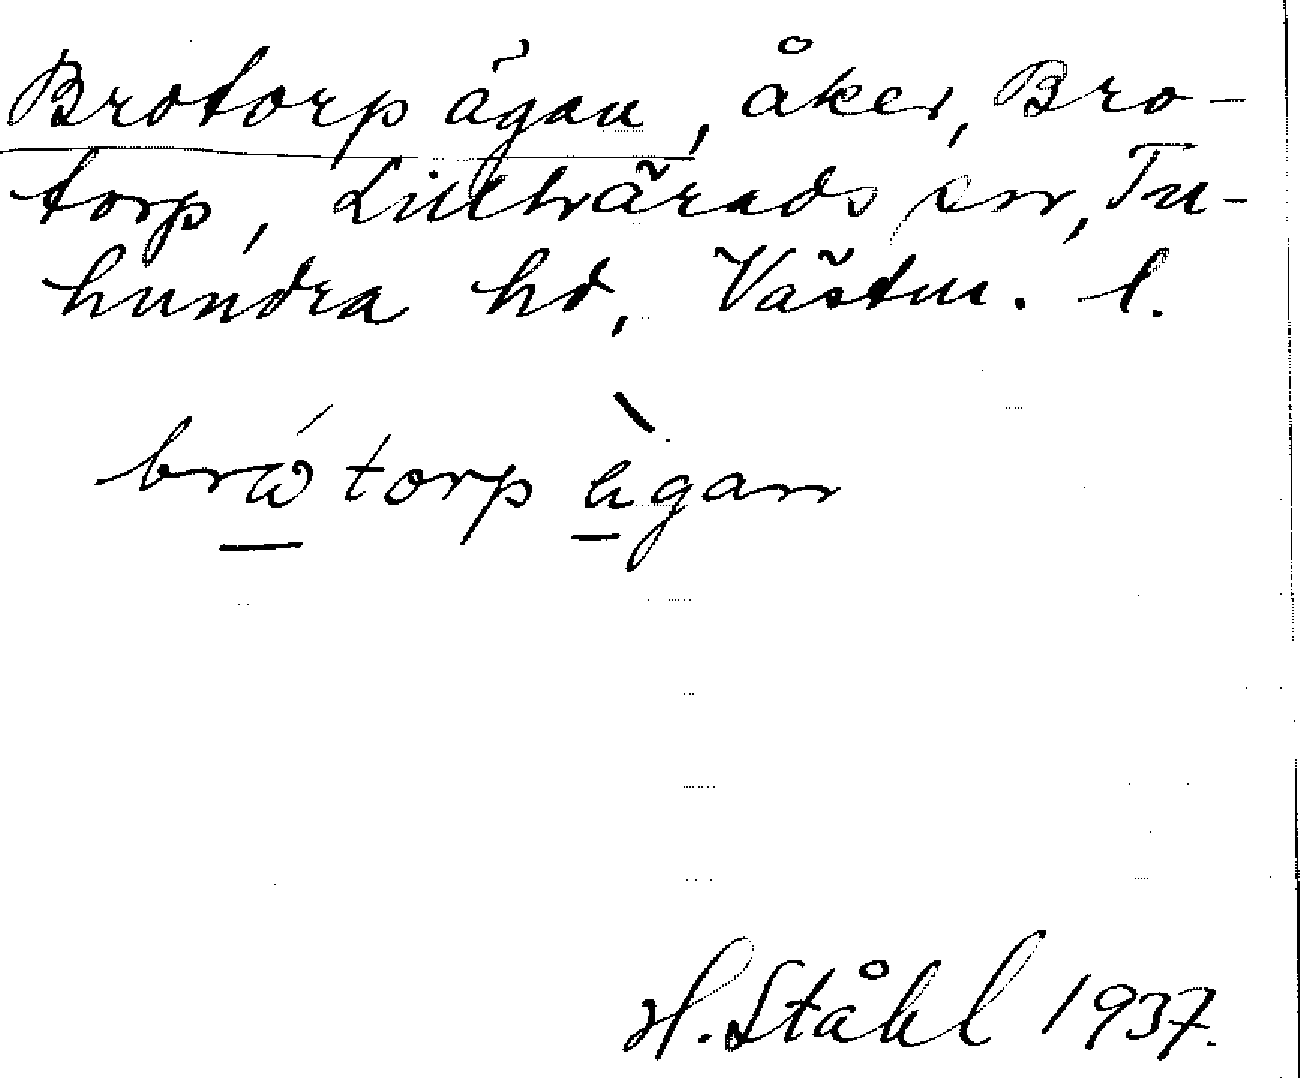 Brotorp ägan, åker, Bro-
torp, Lillhärads sn, Tu-
hundra hd, Västm. l.
brώtorp ὰgan
H. Ståhl 1937.